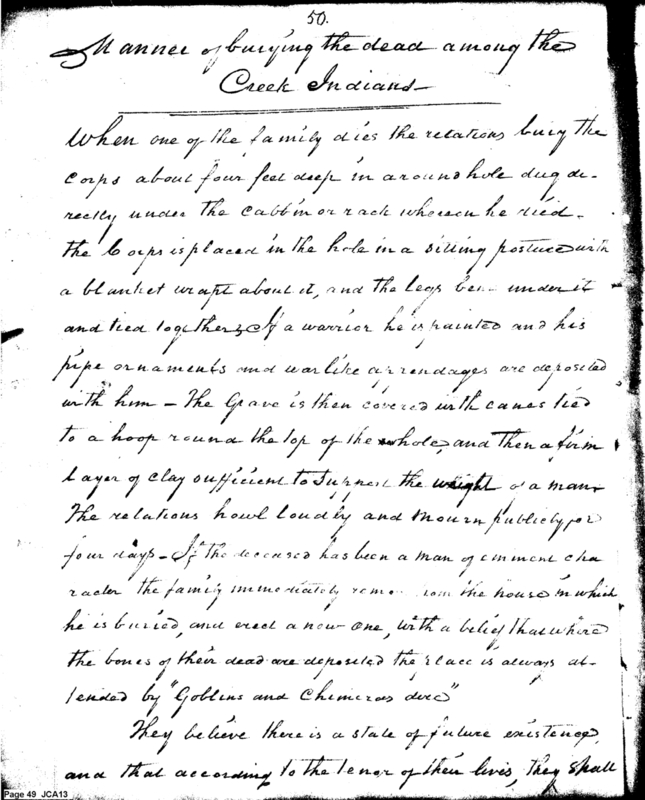 50.
Manner of burying the dead among the
Creek Indians—
When one of the family dies the relations bury the
corps about four feet deep in a round hole dug di-
rectly under the cabbin or rack wherein he died.
the Corps is placed in the hole in a sitting posture with
a blanket wrapt about it, and the legs under it
and tied together, If a warrior he is painted and his
pipe ornaments and warlike appendages are deposited
with him — The Grave is then covered with canes tied
to a hoop round the top of the hole, and then a firm
layer of clay sufficient to support the weight of a man
The relations howl loudly and mourn publicly for
four days — If the deceased has been a man of eminent cha
racter the family immediately from the house in which
he is buried, and erect a new one, with a belief that where
the bones of their dead are deposited the place is always at-
tended by "Goblins and Chimeras dire"
They believe there is a state of future existence,
and that according to the tenor of their lives, they shall
Page 49 JCA13